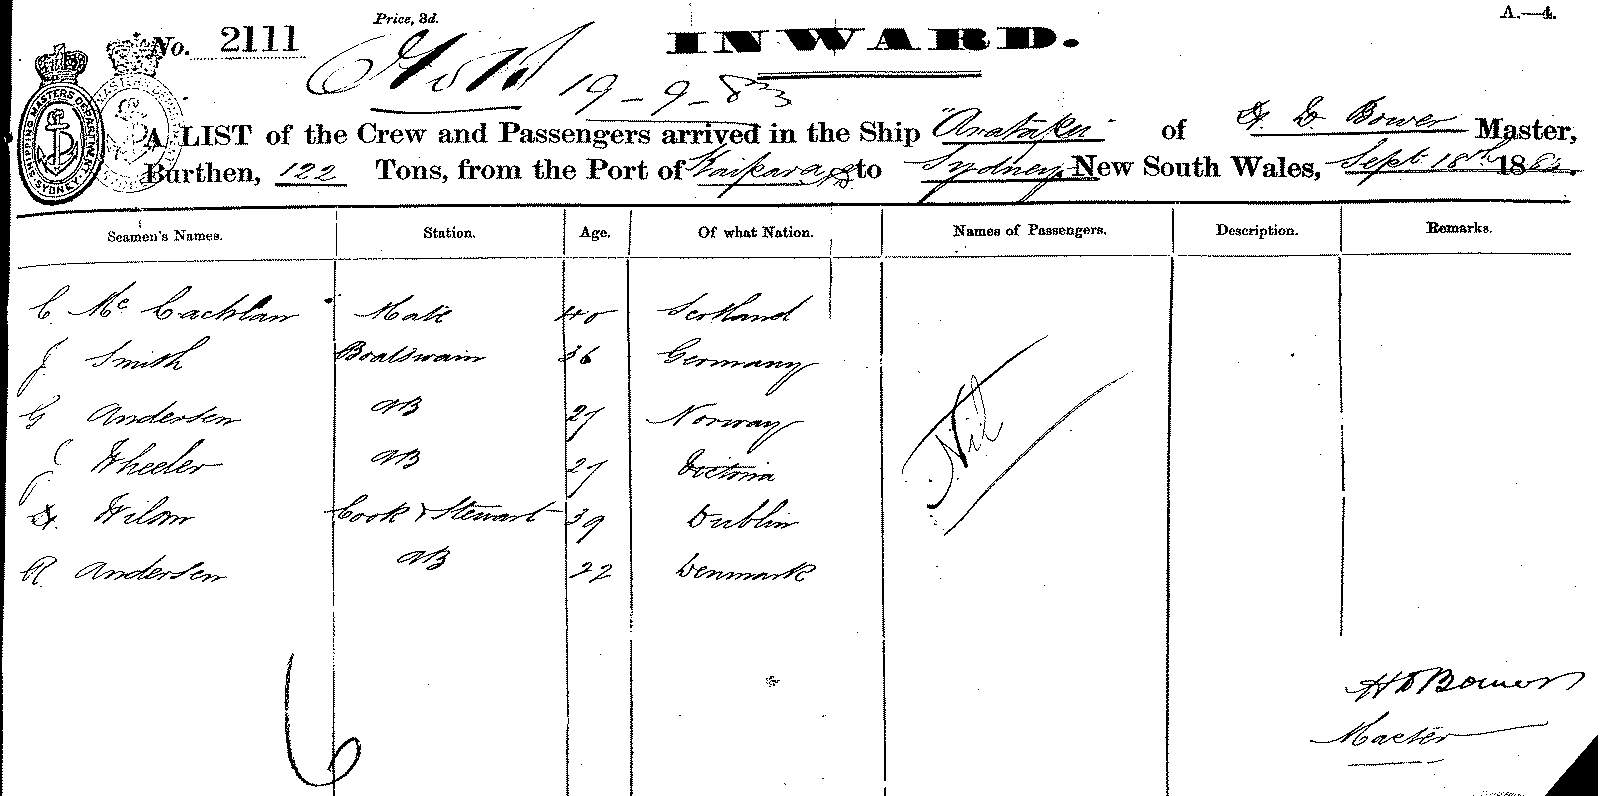 Price, 3d.
A.—4.
No. 2111
INWARD.
19-9-83
A LIST of the Crew and Passengers arrived in the Ship "Arataki" of H. D. Bower Master,
Burthen, 122 Tons, from the Port of Kaipara NZ to Sydney, New South Wales, Sept 18th 1883.
Seamen's Names. Station. Age. Of what Nation. Names of Passengers. Description. Remarks.
C. Mc Lachlan Mate 40 Scotland
J. Smith Boatswain 36 Germany
G Andersen AB 27 Norway
J Wheeler AB 27 Victoria
H. Wilson Cook & Stewart 39 Dublin
R. Andersen AB 22 Denmark
Nil
6
H D Bower
Master
SHIPPING MASTERS DEPARTMENT
SYDNEY